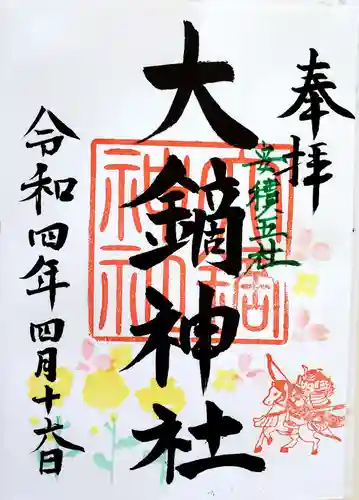 奉拝
安積五社
大鏑神社
令和四年四月十六日